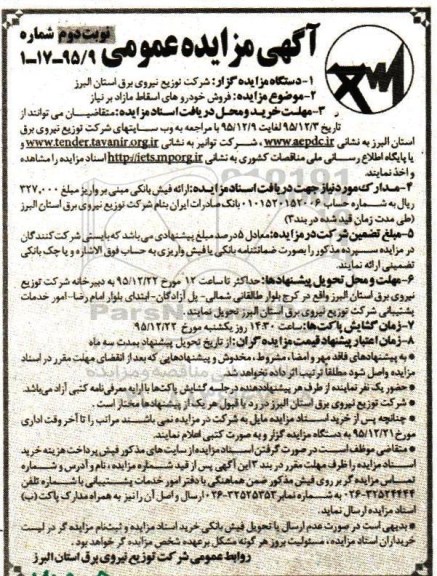 آگهی مزایده عمومی
نوبت دوم
شماره
۱-۱۷-۹۵/۹
۱-دستگاه مزایده گزار: شرکت توزیع نیروی برق استان البرز
۲-موضوع مزایده: فروش خودرو های اسقاط مازاد بر نیاز
۳-مهلت خرید و محل دریافت اسناد مزایده: متقاضیان می توانند از
تاریخ ۹۵/۱۲/۳ لغایت ۹۵/۱۲/۹ با مراجعه به وب سایتهای شرکت توزیع نیروی برق
استان البرز به نشانی www.aepdc.ir ، شرکت توانیر به نشانی www.tender.tavanir.org.ir و
یا پایگاه اطلاع رسانی ملی مناقصات کشوری به نشانی http://iets.mporg.ir اسناد مزایده را مشاهده
و اخذ نمایند.
۴-مدارک مورد نیاز جهت دریافت اسناد مزایده: ارائه فیش بانکی مبنی بر واریز مبلغ ۳۲۷،۰۰۰
ریال به شماره حساب ۰۱۰۱۵۲۰۱۵۲۰۰۶ بانک صادرات ایران بنام شرکت توزیع نیروی برق استان البرز
(طی مدت زمان قید شده در بند۳)
۵-مبلغ تضمین شرکت در مزایده: معادل ۵ درصد مبلغ پیشنهادی می باشد که بایستی شرکت کنندگان
در مزایده سپرده مذکور را بصورت ضمانتنامه بانکی یا فیش واریزی به حساب فوق الاشاره و یا چک بانکی
تضمینی ارائه نمایند.
۶-مهلت و محل تحویل پیشنهادها: حداکثر تا ساعت ۱۲ مورخ ۹۵/۱۲/۲۲ به دبیرخانه شرکت توزیع
نیروی برق استان البرز واقع در کرج بلوار طالقانی شمالی- پل آزادگان- ابتدای بلوار امام رضا- امور خدمات
پشتیبانی شرکت توزیع نیروی برق استان البرز تحویل نمایند.
۷-زمان گشایش پاکت ها: ساعت ۱۴:۳۰ روز یکشنبه مورخ ۹۵/۱۲/۲۲
۸-زمان اعتبار پیشنهاد قیمت مزایده گران: از تاریخ تحویل پیشنهاد بمدت سه ماه
به پیشنهادهای فاقد مهر و امضا، مشروط، مخدوش و پیشنهادهایی که بعد از انقضای مهلت مقرر در اسناد
مزایده واصل شود مطلقا ترتیب اثر داده نخواهد شد.
حضور یک نفر نماینده از طرف هر پیشنهاددهنده در جلسه گشایش پاکت ها با ارایه معرفی نامه کتبی آزاد می باشد.
شرکت توزیع نیروی برق استان البرز در رد یا قبول هر یک از پیشنهادها مختار است.
چنانچه پس از خرید اسناد مزایده مایل به شرکت در مزایده نمی باشند مراتب را تا آخر وقت اداری
مورخ ۹۵/۱۲/۲۱ به دستگاه مزایده گزار و به صورت کتبی اعلام نمایند.
متقاضی موظف است در صورت گرفتن اسناد مزایده از سایت های مذکور فیش پرداخت هزینه خرید
اسناد مزایده را ظرف مهلت مقرر در بند ۳ این آگهی پس از قید شماره مزایده، نام و آدرس و شماره
تماس مزایده گر بر روی فیش مذکور ضمن هماهنگی با دفتر امور خدمات پشتیبانی با شماره تلفن
۰۲۶-۳۲۵۲۴۴۴۴ به شماره نمابر ۳۲۵۲۵۳۵۳-۰۲۶ ارسال و اصل آن را نیز به همراه مدارک پاکت (ب)
اسناد مزایده ارسال نماید.
بدیهی است در صورت عدم ارسال یا تحویل فیش بانکی خرید اسناد مزایده و ثبت نام مزایده گر در لیست
خریداران اسناد مزایده ، مسئولیت بروز هر گونه مشکل بر عهده شخص مزایده گر خواهد بود.
روابط عمومی شرکت توزیع نیروی برق استان البرز